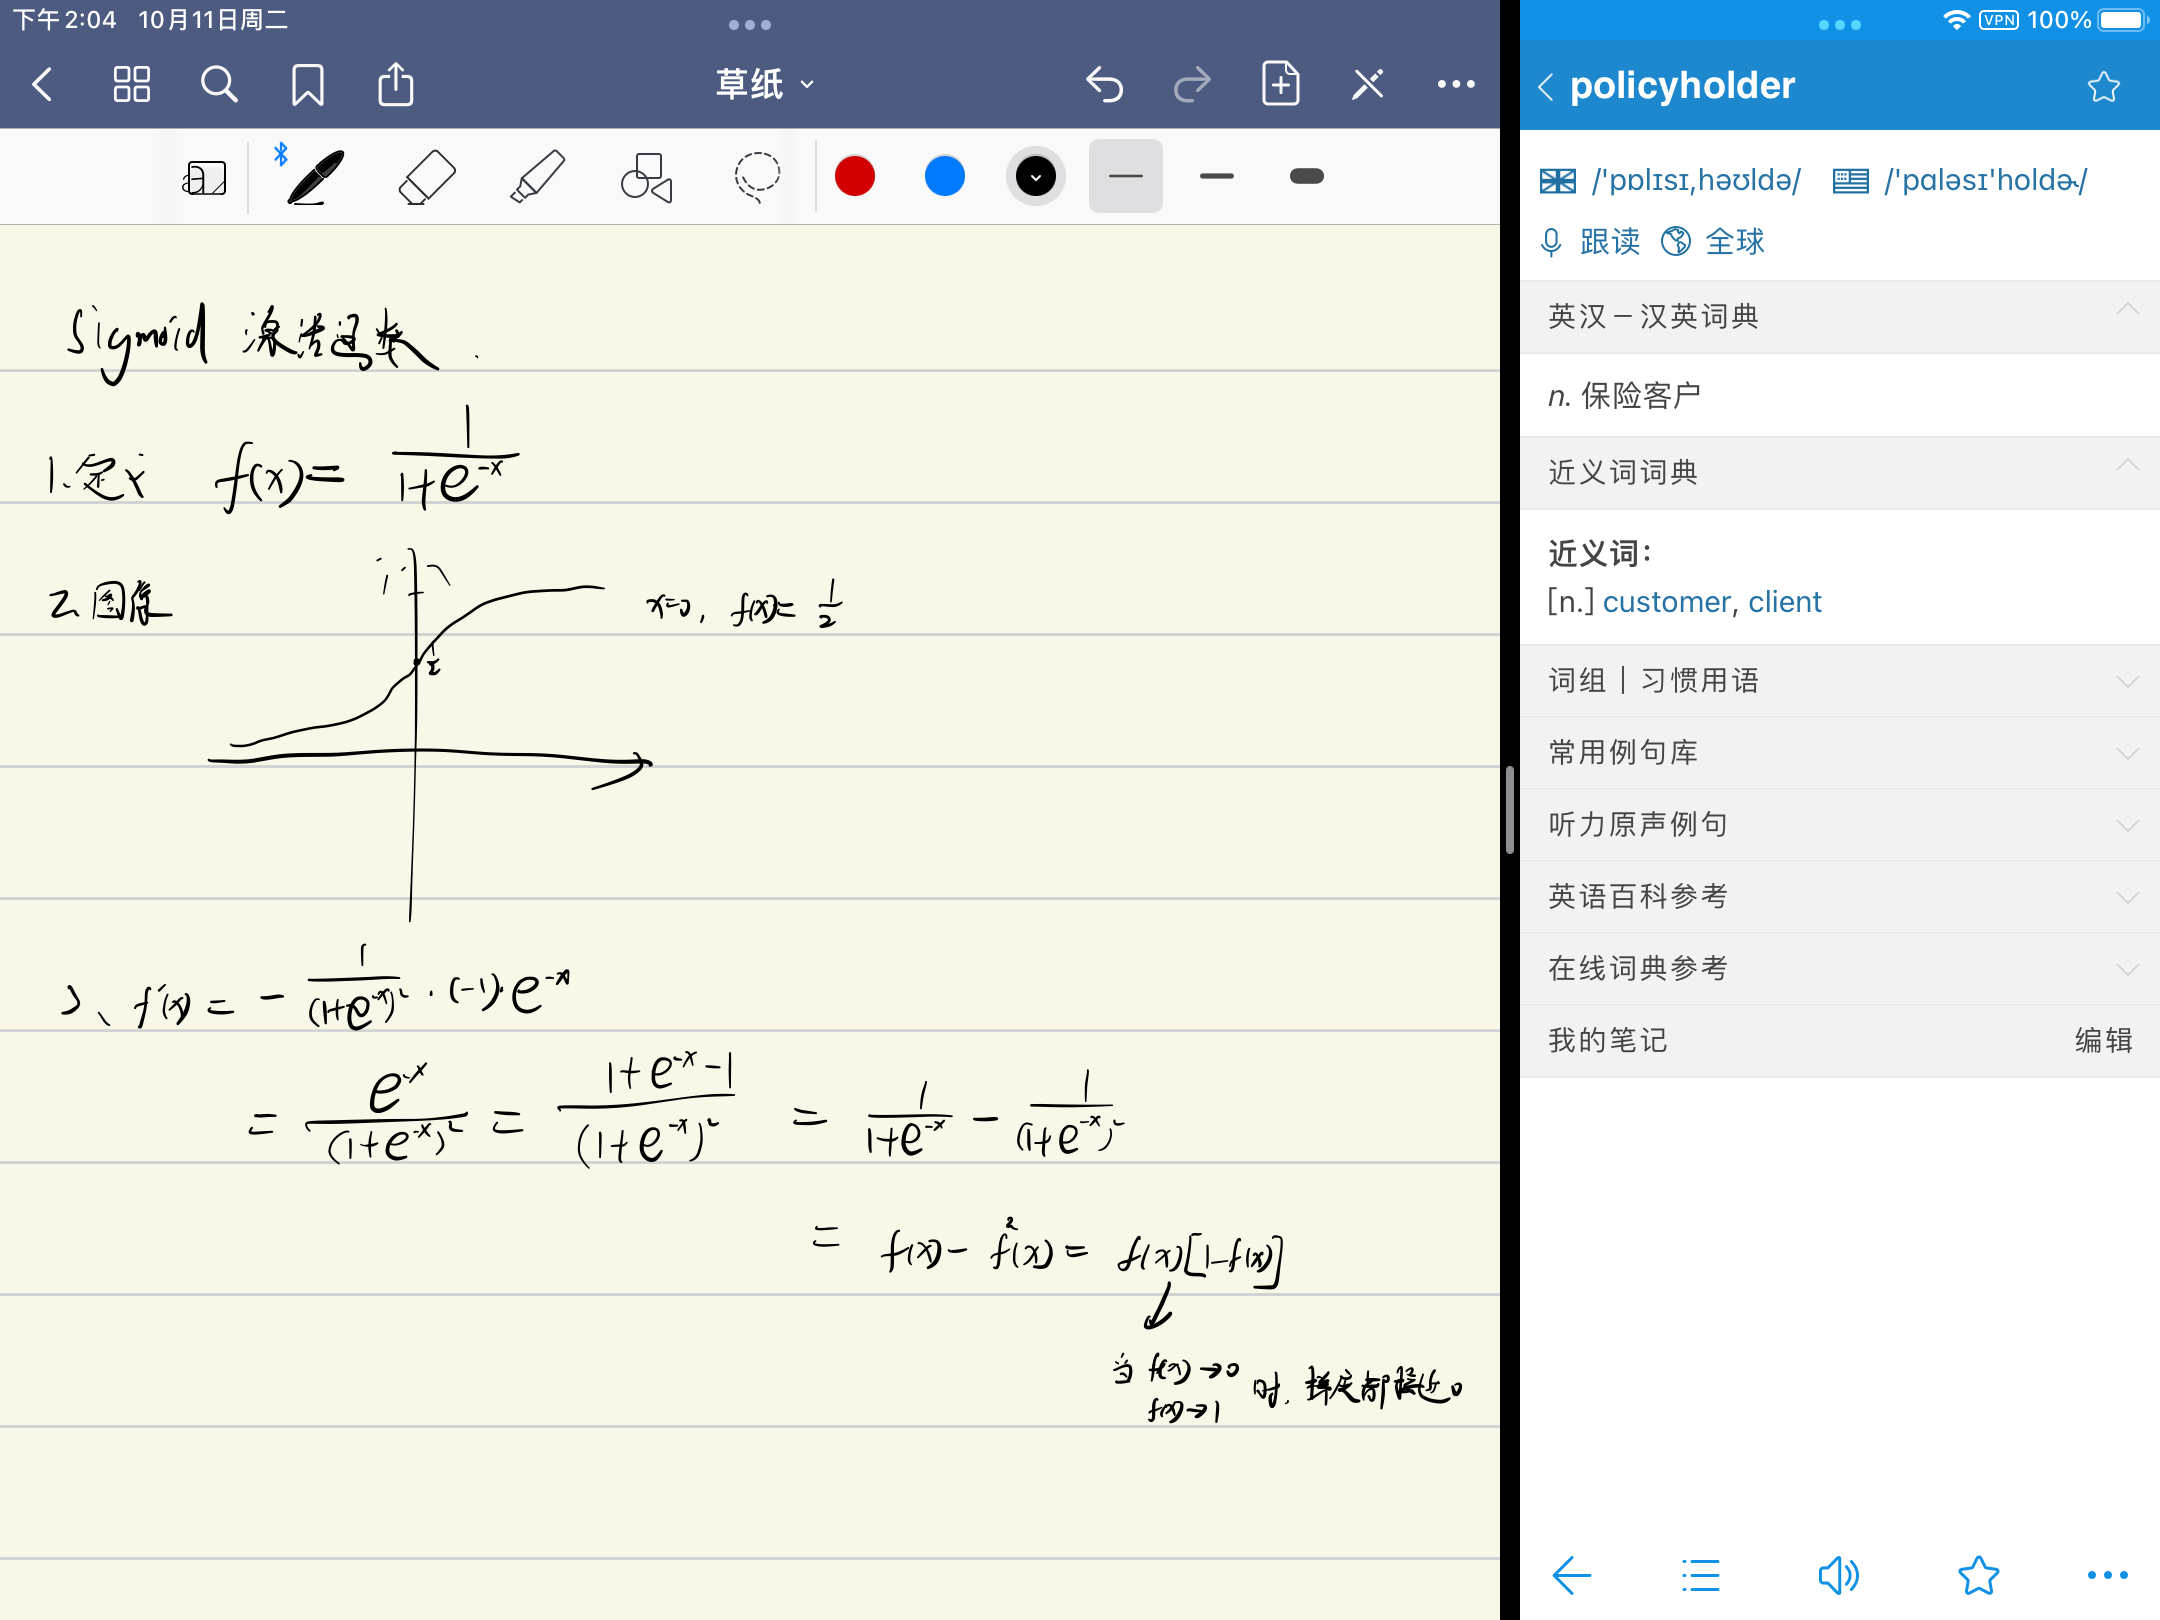 下午2:04 10月11日周二
草纸
Sigmoid 激活函数.
1.定义 f(x)= 1/(1+e^-x)
2.图像
x=0, f(x)= 1/2
1
1/2
3、f'(x) = - 1/(1+e^-x)² · (-1)·e^-x
= e^-x/(1+e^-x)² = (1+e^-x-1)/(1+e^-x)² = 1/(1+e^-x) - 1/(1+e^-x)²
= f(x) - f²(x) = f(x)[1-f(x)]
当 f(x)→0
f(x)→1 时, 梯度都接近0
VPN 100%
policyholder
/'pɒlɪsɪ,həʊldə/ /'pɑləsɪ'holdɚ/
跟读 全球
英汉－汉英词典
n. 保险客户
近义词词典
近义词：
[n.] customer, client
词组｜习惯用语
常用例句库
听力原声例句
英语百科参考
在线词典参考
我的笔记 编辑